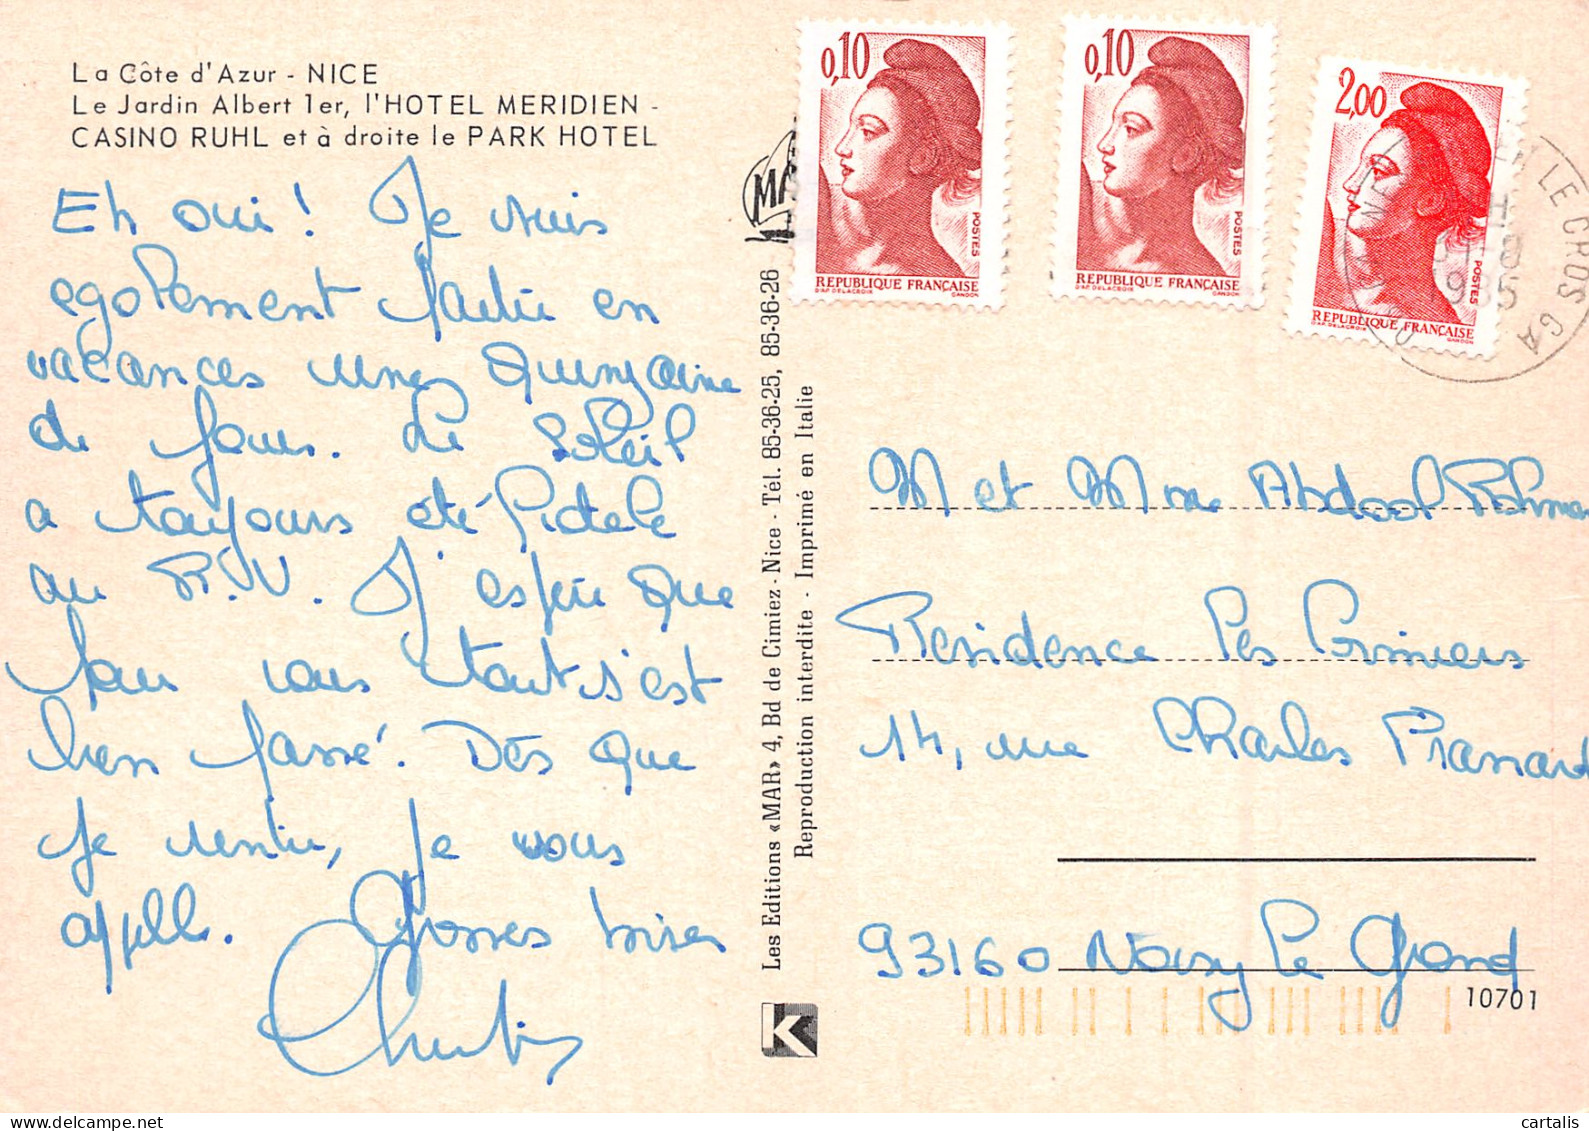 La Côte d'Azur - NICE
Le Jardin Albert 1er, l'HOTEL MERIDIEN -
CASINO RUHL et à droite le PARK HOTEL
Eh oui ! Je suis
egalement partie en
vacances une quinzaine
de jours. Le soleil
a toujours été fidele
au R.V. J'espère que
pour vous tout s'est
bien passé. Dès que
je rentre, je vous
appelle. Grosses bises
Les Editions «MAR» 4, Bd de Cimiez - Nice - Tél. 85-36-25, 85-36-26
Reproduction interdite - Imprimé en Italie
K
0,10
POSTES
REPUBLIQUE FRANÇAISE
D'AP. DELACROIX GANDON
0,10
POSTES
REPUBLIQUE FRANÇAISE
D'AP. DELACROIX GANDON
2,00
POSTES
REPUBLIQUE FRANÇAISE
D'AP. DELACROIX GANDON
LE CROS
1985
M et Mme Abdool
Residence les
14, rue Charles
93160 Noisy le Grand
10701
cartalis